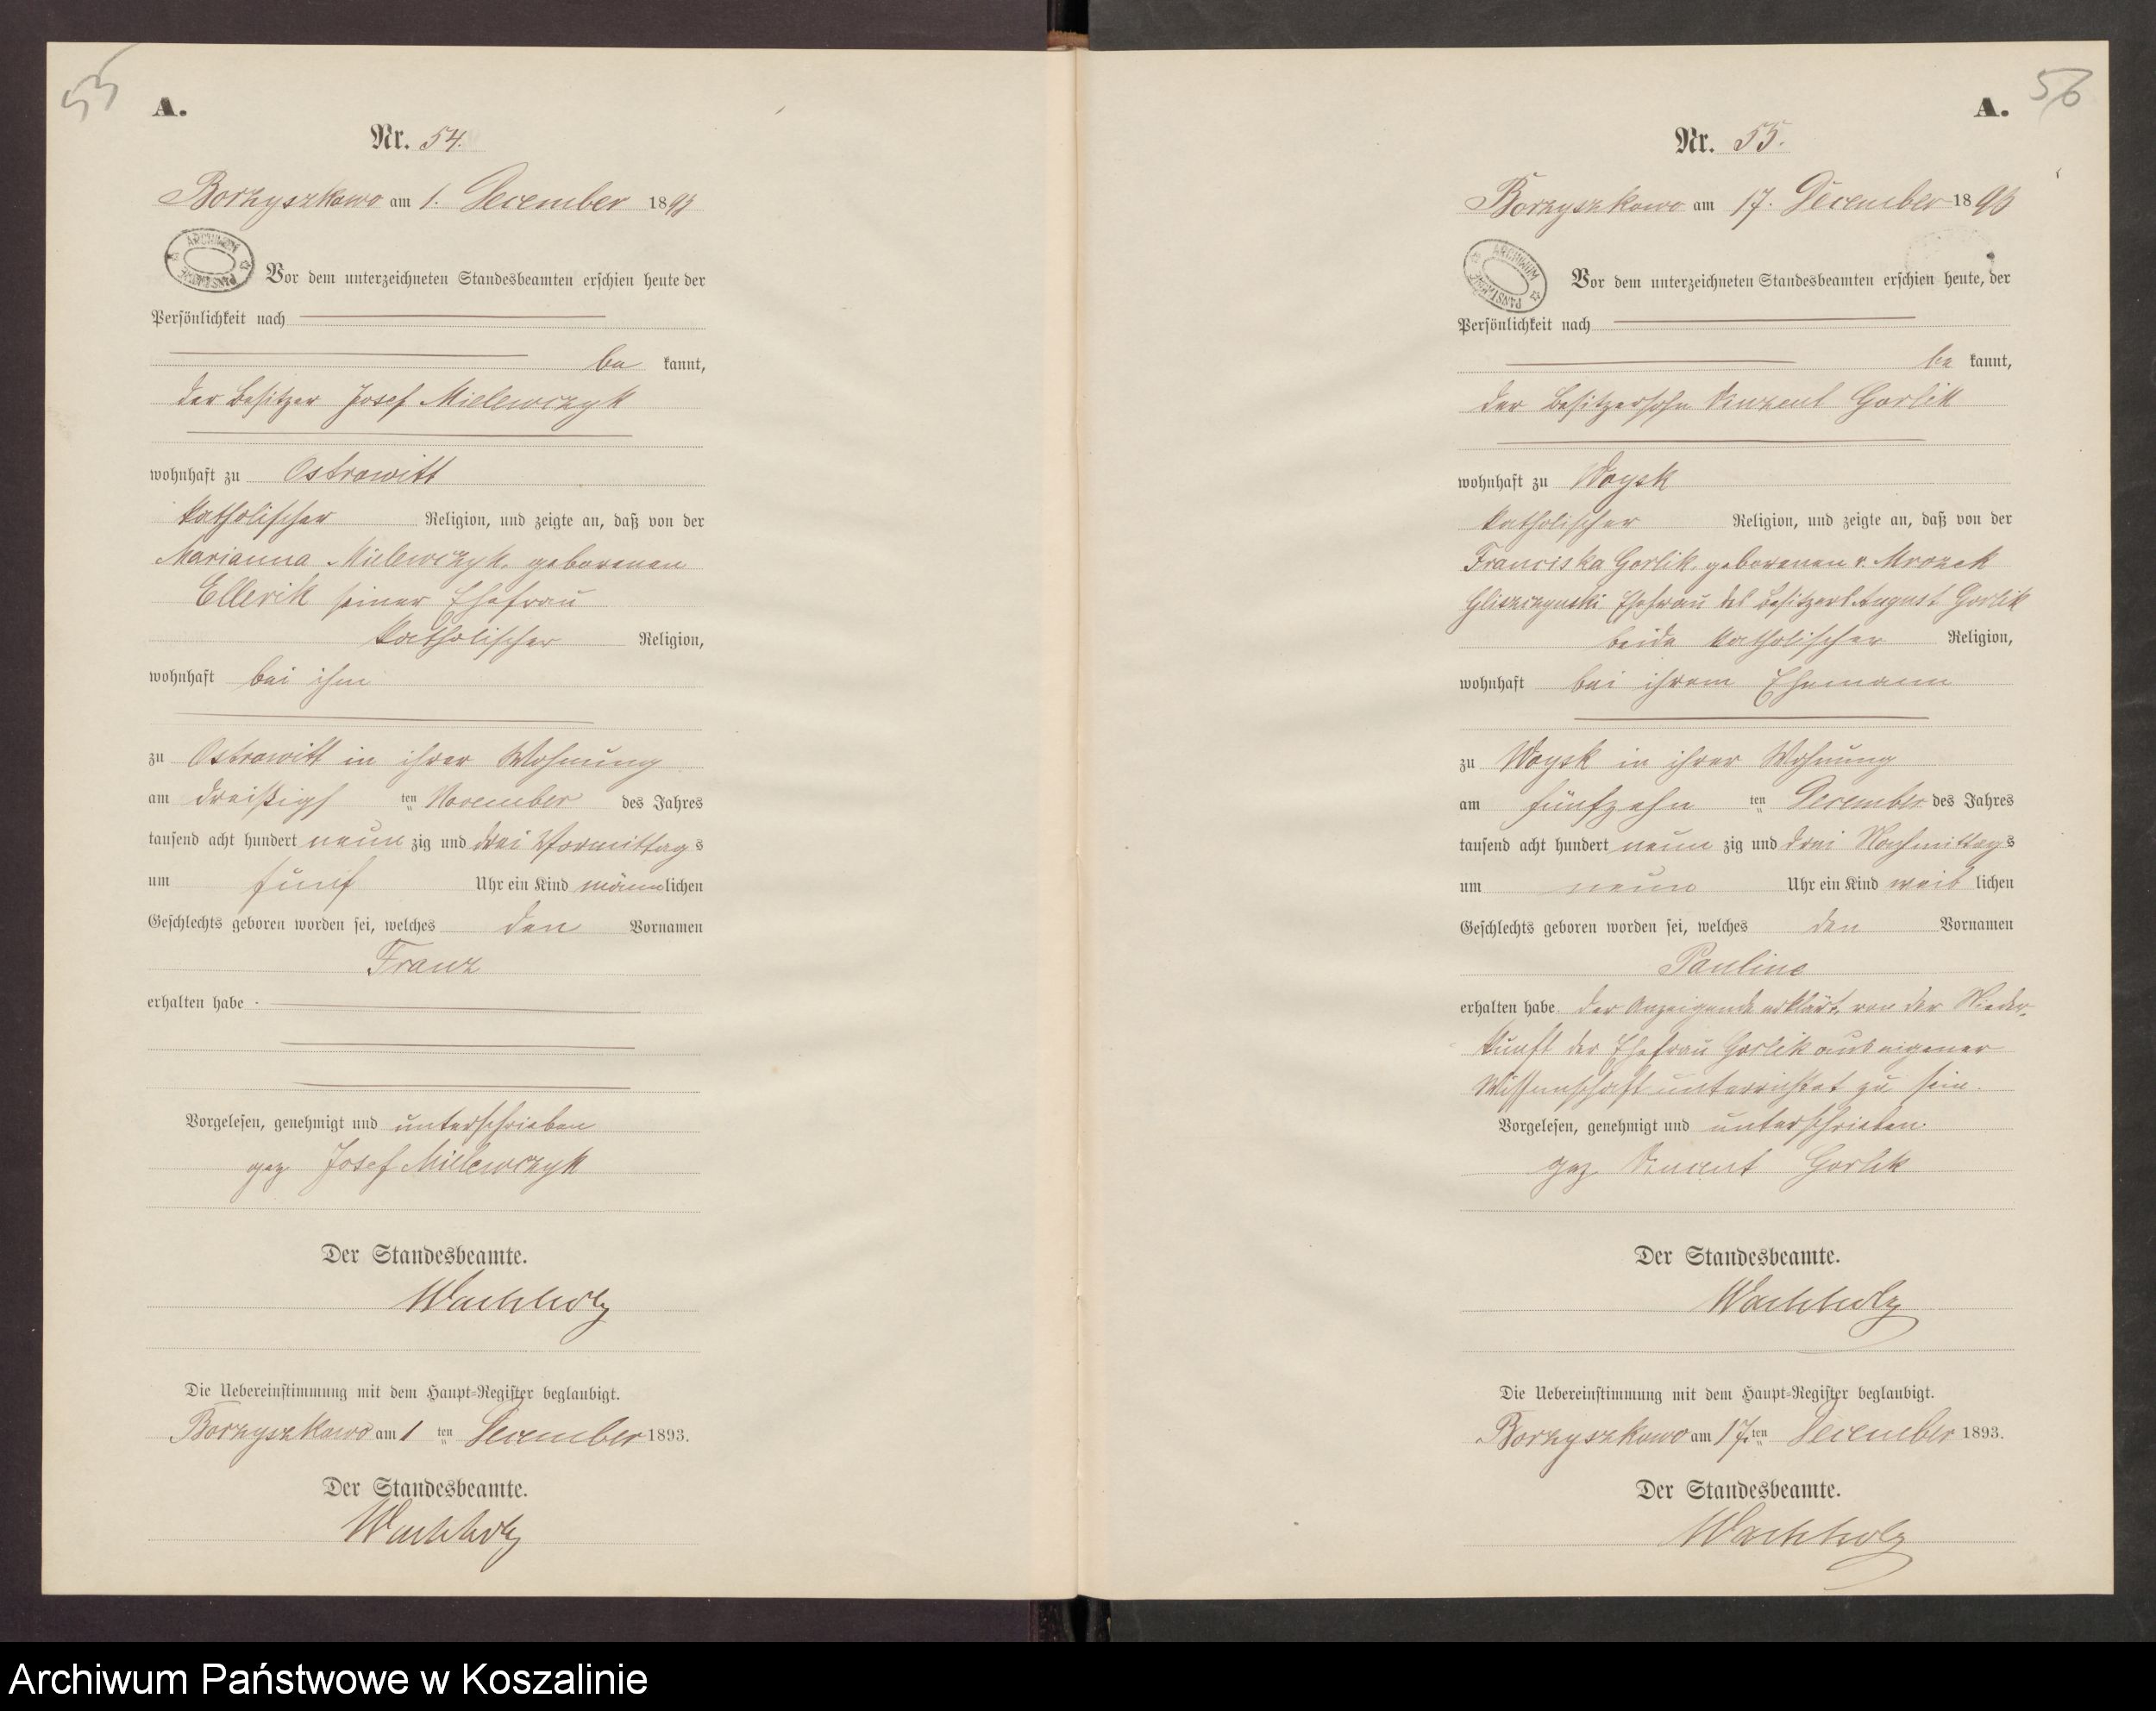 55
A.
Nr. 54.
Borzyszkowo am 1. December 1893
ARCHIWUM PAŃSTWOWE
Vor dem unterzeichneten Standesbeamten erschien heute der
Persönlichkeit nach
be kannt,
der Besitzer Josef Mielewczyk
wohnhaft zu Ostrowitt
katholischer Religion, und zeigte an, daß von der
Marianna Mielewczyk, geborenen
Ellerik seiner Ehefrau
katholischer Religion,
wohnhaft bei ihm
zu Ostrowitt in ihrer Wohnung
am dreißigs ten November des Jahres
tausend acht hundert neun zig und drei Vormittags
um fünf Uhr ein Kind männlichen
Geschlechts geboren worden sei, welches den Vornamen
Franz
erhalten habe.
Vorgelesen, genehmigt und unterschrieben
gez Josef Mielewczyk
Der Standesbeamte.
Wachholz
Die Uebereinstimmung mit dem Haupt-Register beglaubigt.
Borzyszkowo am 1 ten December 1893.
Der Standesbeamte.
Wachholz
56
A.
Nr. 55.
Borzyszkowo am 17. December 1893
ARCHIWUM PAŃSTWOWE
Vor dem unterzeichneten Standesbeamten erschien heute, der
Persönlichkeit nach
be kannt,
der Besitzersohn Vinzent Gorlik
wohnhaft zu Woysk
katholischer Religion, und zeigte an, daß von der
Franciska Gorlik, geborenen v. Mrozek
Gliszczynski Ehefrau des Besitzers August Gorlik
beide katholischer Religion,
wohnhaft bei ihrem Ehemann
zu Woysk in ihrer Wohnung
am fünfzehn ten December des Jahres
tausend acht hundert neun zig und drei Nachmittags
um neun Uhr ein Kind weib lichen
Geschlechts geboren worden sei, welches den Vornamen
Pauline
erhalten habe. der Anzeigende erklärt, von der Nieder-
kunft der Ehefrau Gorlik aus eigener
Wissenschaft unterrichtet zu sein.
Vorgelesen, genehmigt und unterschrieben.
gez. Vincent Gorlik
Der Standesbeamte.
Wachholz
Die Uebereinstimmung mit dem Haupt-Register beglaubigt.
Borzyszkowo am 17. ten December 1893.
Der Standesbeamte.
Wachholz
Archiwum Państwowe w Koszalinie